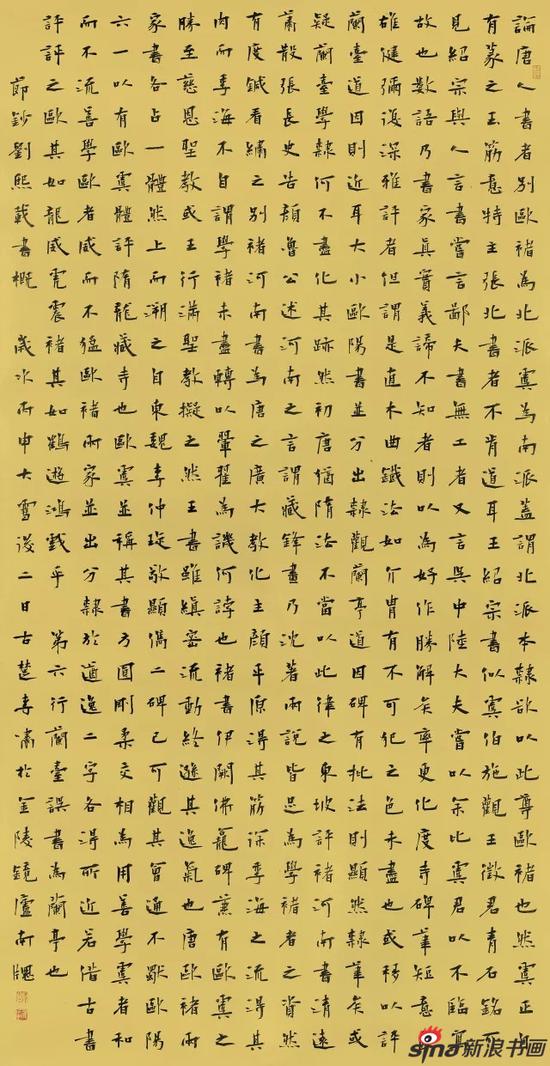 論唐人書者別歐褚為北派虞為南派蓋謂北派本隸欲以此尊歐褚也然虞正自
有篆之玉筯意特主張北書者不肯道耳王紹宗書似虞伯施觀王徵君青石銘可
見紹宗與人言書嘗言鄙夫書無工者又言吳中陸大夫嘗以余比虞君以不臨寫
故也數語乃書家真實義諦不知者則以為好作勝解矣率更化度寺碑筆短意
雄健彌復深雅評者但謂是直木曲鐵法如介胄有不可犯之色未盡也或移以評
蘭臺道因則近耳大小歐陽書並分出隸觀蘭亭道因碑有批法則顯然隸筆矣或
疑蘭臺學隸何不盡化其跡然初唐猶隋法不當以此律之東坡評褚河南書清遠
蕭散張長史告顏魯公述河南之言謂藏鋒畫乃沈著兩說皆足為學褚者之資然
有度鍼看繡之別褚河南書為唐之廣大教化主顏平原得其筋徐季海之流得其
肉而季海不自謂學褚未盡轉以翬翟為譏何誖也褚書伊闕佛龕碑兼有歐虞之
勝至慈恩聖教或王行滿聖教擬之然王書雖縝密流動終遜其逸氣也唐歐褚兩
家書各占一體然上而溯之自東魏李仲璇敬顯儁二碑已可觀其會通不獨歐陽
六一以有歐虞體評隋龍藏寺也歐虞並稱其書乃圓剛柔交相為用善學虞者和
而不流善學歐者威而不猛歐褚兩家並出分隸於遒逸二字各得所近若借古書
評評之歐其如龍威虎震褚其如鶴遊鴻戲乎 第六行蘭臺誤書為蘭亭也
節鈔劉熙載書概 歲次丙申大雪後二日古楚李潚於金陵鏡廬南牕
sina新浪书画